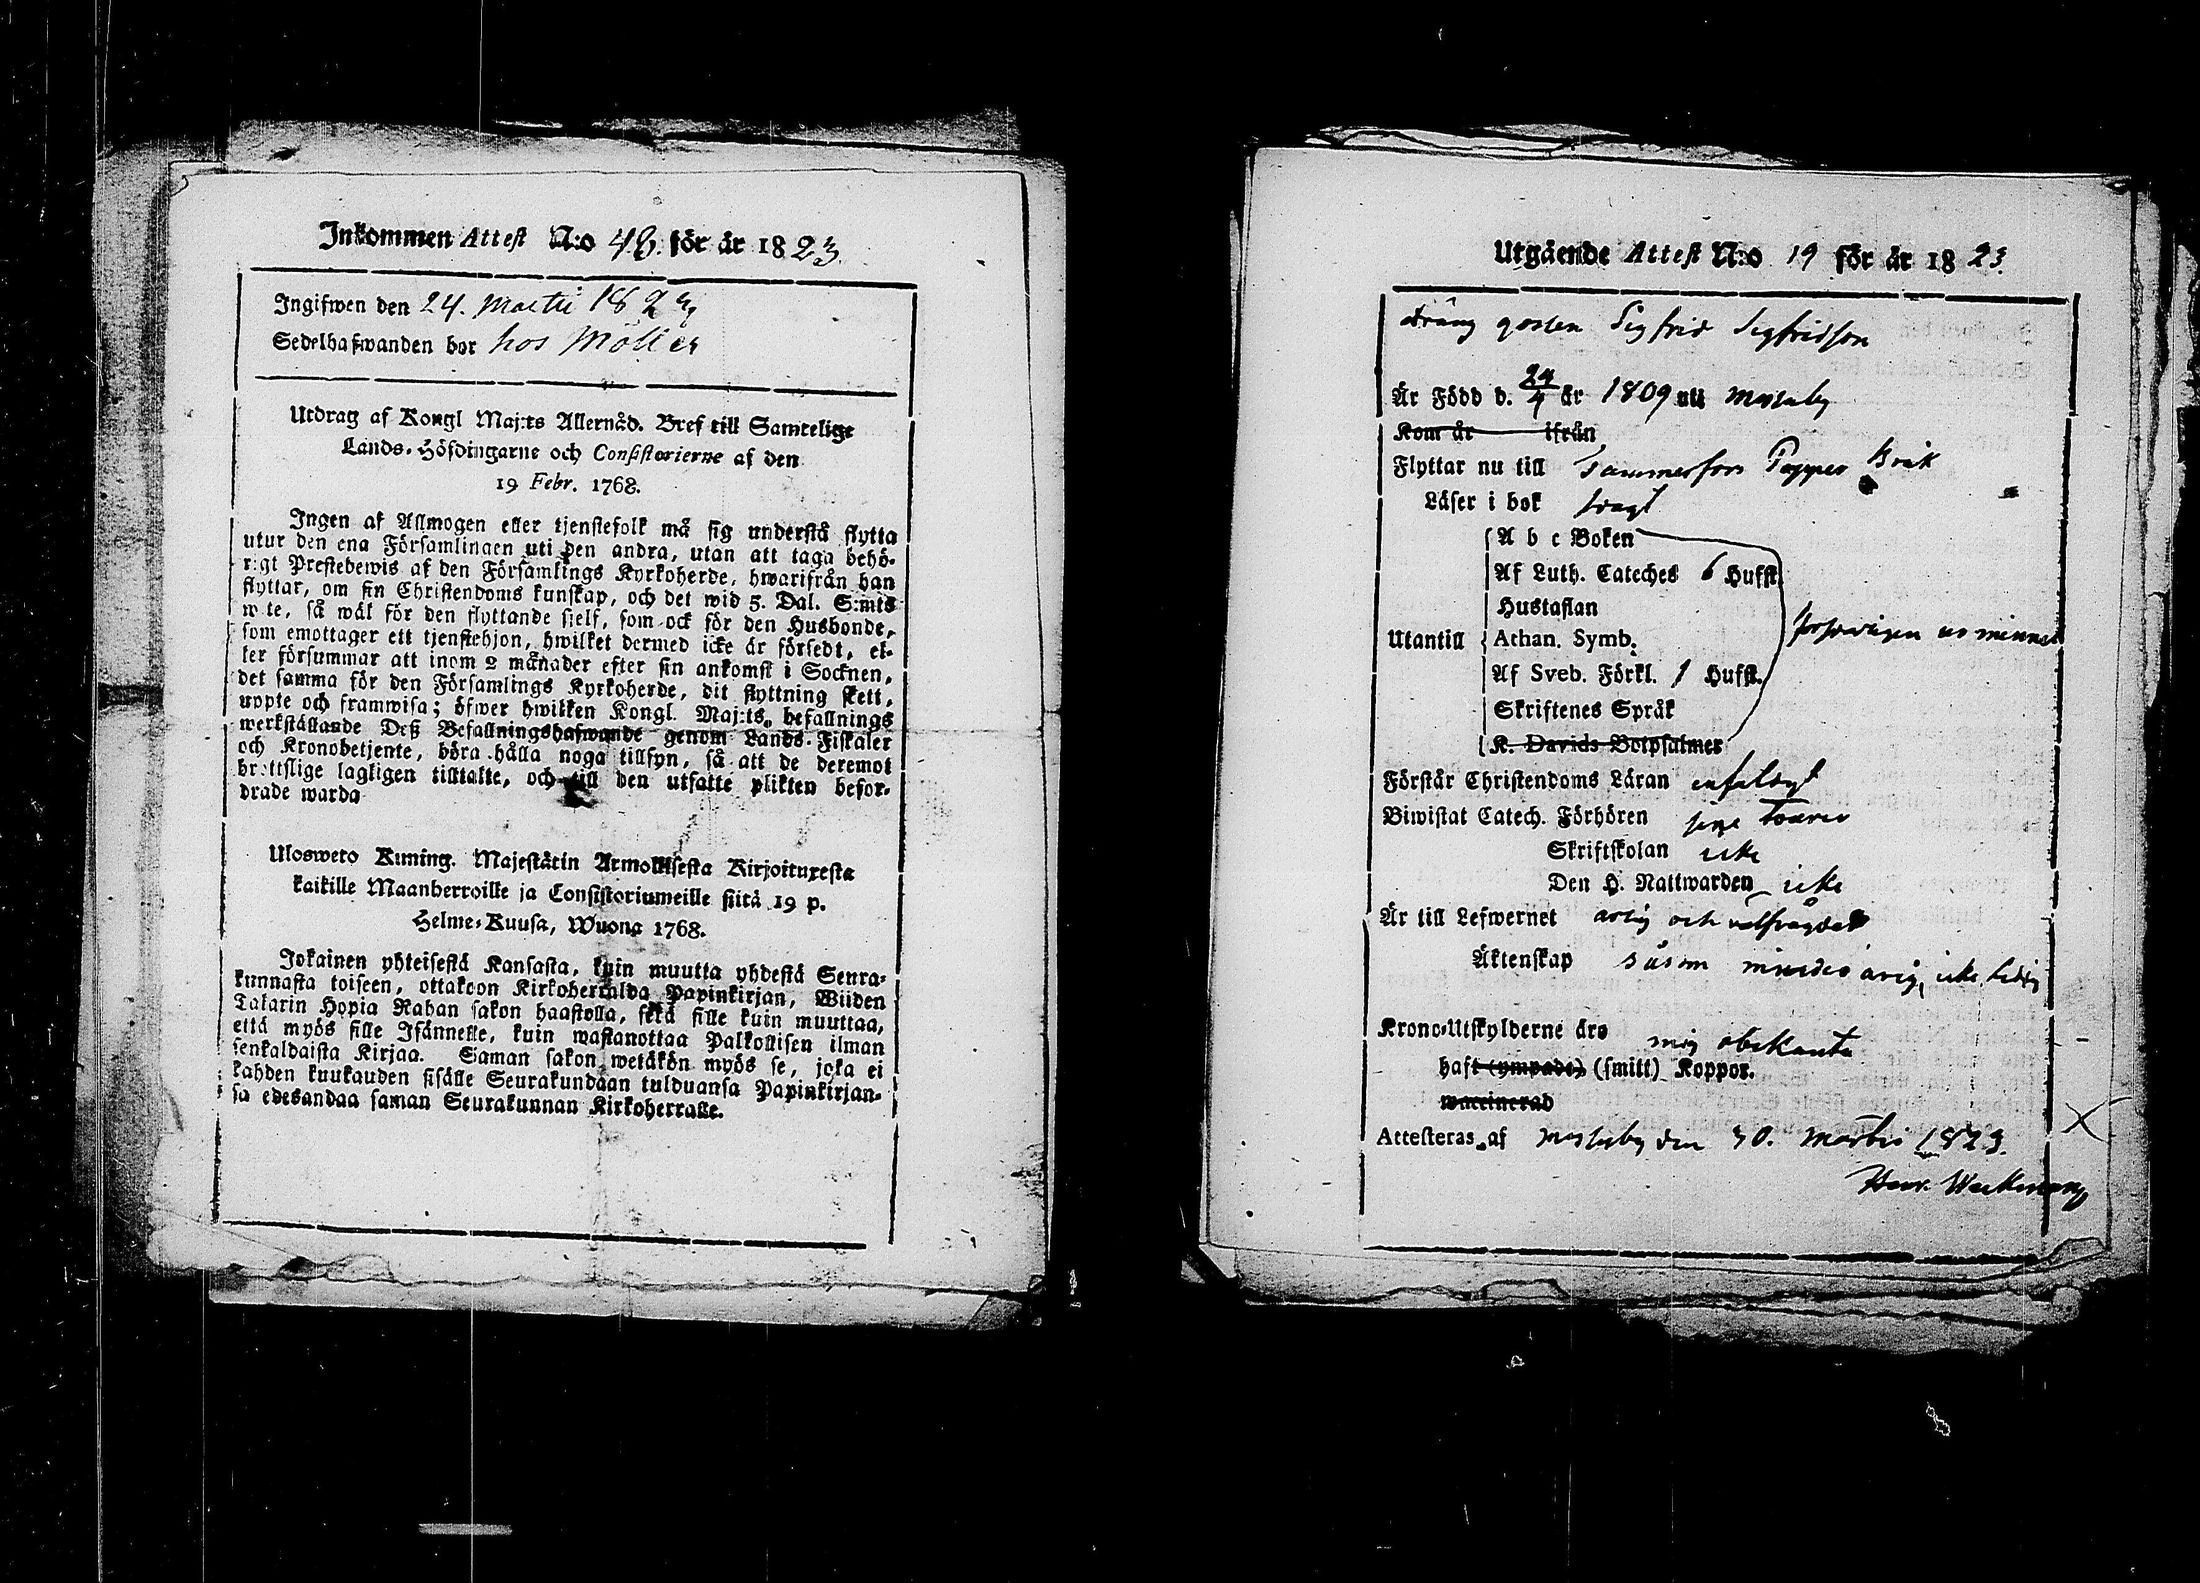 Inkommen Attest N:o 48. för år 1823.
Ingifwen den 24. Martii 1823
Sedelhafwanden bor hos Möller
Utdrag af Kongl Maj:ts Allernåd. Bref till Samtelige
Lands-Höfdingarne och Consistorierne af den
19 Febr. 1768.
Ingen af Allmogen eller tjenstefolk må sig understå flytta
utur den ena Församlingen uti den andra, utan att taga behö-
rigt Prestebewis af den Församlings Kyrkoherde, hwarifrån han
flyttar, om sin Christendoms kunskap, och det wid 5. Dal. S:mts
wite, så wäl för den flyttande sielf, som ock för den Husbonde,
som emottager ett tjenstehjon, hwilket dermed icke är försedt, el-
ler försummar att inom 2 månader efter sin ankomst i Socknen,
det samma för den Församlings Kyrkoherde, dit flyttning skett,
uppte och framwisa; öfwer hwilken Kongl. Maj:ts befallnings
werkställande Deß Befallningshafwande genom Lands-Fiskaler
och Kronobetjente, böra hålla noga tillsyn, så att de deremot
brottslige lagligen tilltalte, och till den utsatte plikten befor-
drade warda
Ulosweto Kuning. Majestätin Armollisesta Kirjoituxesta
kaikille Maanherroille ja Consistoriumeille siitä 19 p.
Helme-Kuusa, Wuona 1768.
Jokainen yhteisestä Kansasta, kuin muutta yhdestä Seura-
kunnasta toiseen, ottakoon Kirkoherralda Papinkirjan, Wiiden
Talarin Hopia Rahan sakon haastolla, sekä sille kuin muuttaa,
että myös sille Isännelle, kuin wastanottaa Palkollisen ilman
senkaldaista Kirjaa. Saman sakon wetäkön myös se, joka ei
kahden kuukauden sisälle Seurakundaan tulduansa Papinkirjan-
sa edesandaa saman Seurakunnan Kirkoherralle.
Utgående Attest N:o 19 för år 1823.
dräng gossen Sigfrid Sigfridson
Är Född d. 24/4 år 1809 uti Messuby
Kom år ifrån
Flyttar nu till Tammerfors Pappers Bruk
Läser i bok svagt
A b c Boken
Af Luth. Cateches 6 Hufst.
Hustaflan
Utantill Athan. Symb. försvarligen ur minnet
Af Sveb. Förkl. 1 Hufst.
Skriftenes Språk
K. Davids Botpsalmer
Förstår Christendoms Läran enfaldigt
Biwistat Catech. Förhören
Skriftskolan icke
Den H. Nattwarden icke
Är till Lefwernet ärlig och välfrägdad
Äktenskap såsom minderårig, icke ledig
Krono-Utskylderne äro mig obekanta
haft (ympade) (smitt) Koppor.
waccinerad
Attesteras af Messuby den 30. Martii 1823.